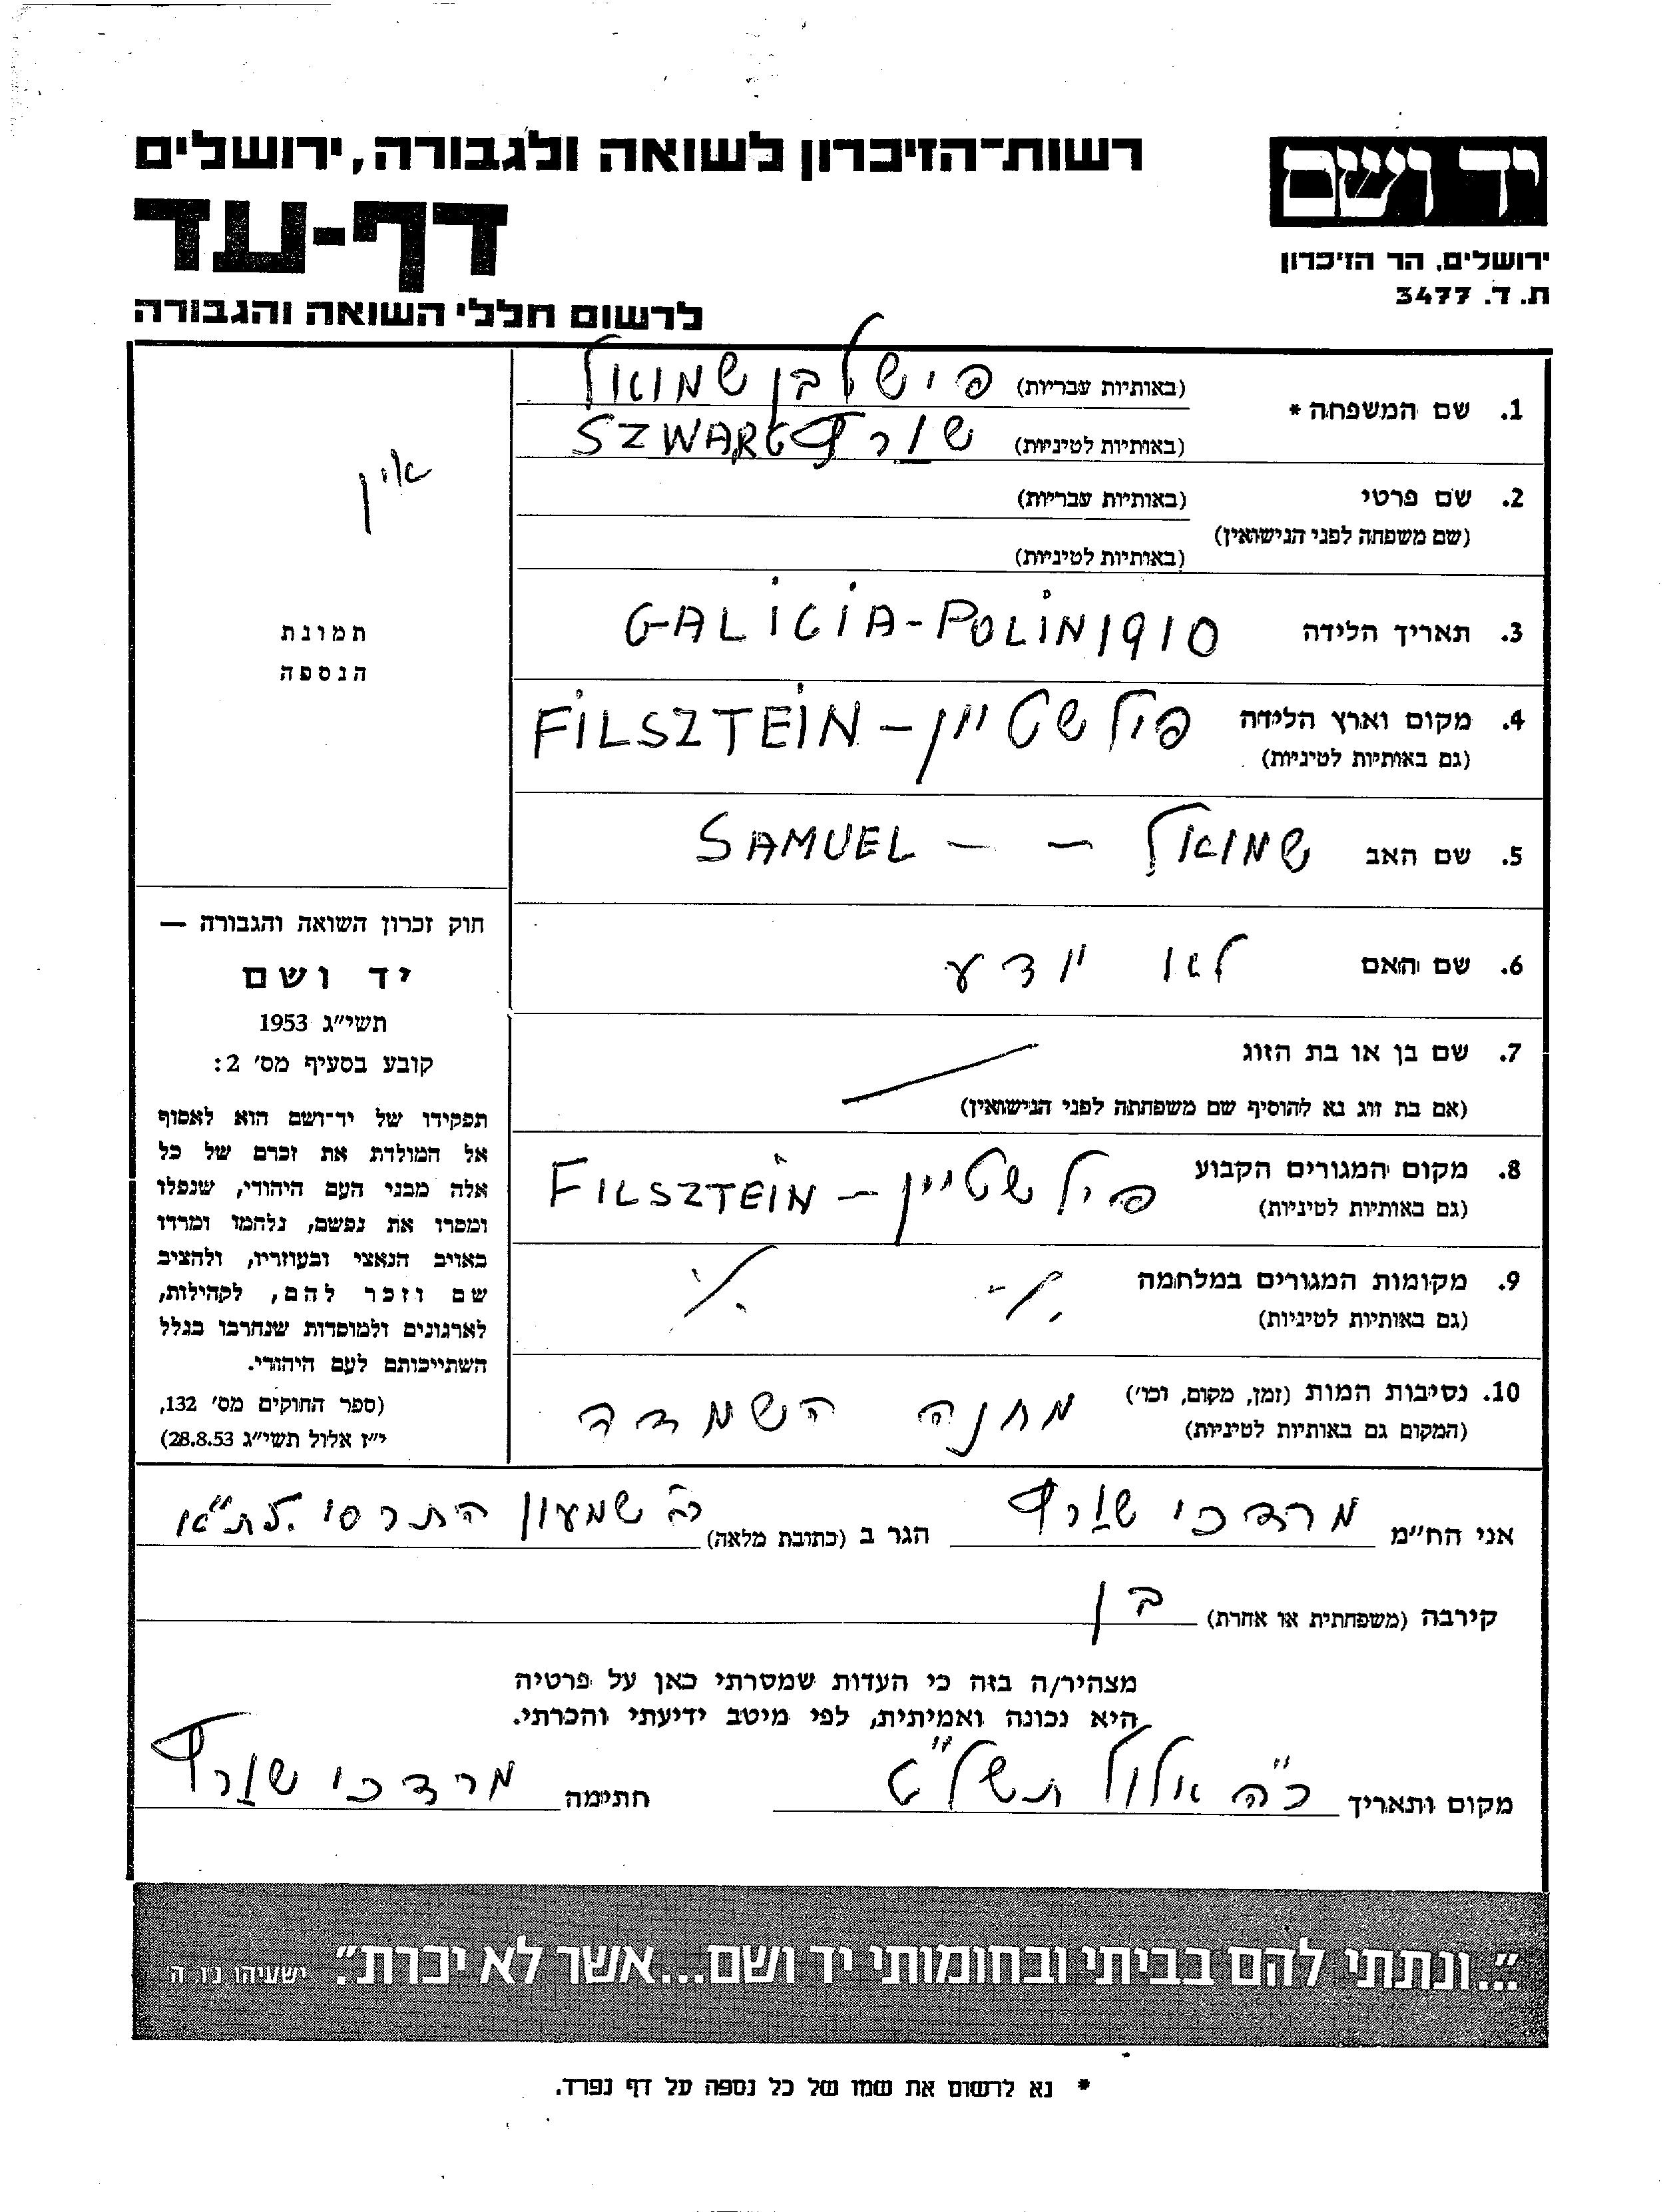 רשות־הזיכרון לשואה ולגבורה, ירושלים
יד ושם
דף-עד
ירושלים, הר הזיכרון
ת. ד. 3477
לרשום חללי השואה והגבורה
1. שם המשפחה * (באותיות עבריות) פישל בן שמואל
(באותיות לטיניות) שורף SZWARC
אין
2. שם פרטי (באותיות עבריות)
(שם משפחה לפני הנישואין)
(באותיות לטיניות)
3. תאריך הלידה GALICIA-POLIN 1910
תמונת
הנספה
4. מקום וארץ הלידה פילשטיין - FILSZTEIN
(גם באותיות לטיניות)
5. שם האב שמואל - - SAMUEL
6. שם האם לא יודע
7. שם בן או בת הזוג
(אם בת זוג נא להוסיף שם משפחתה לפני הנישואין)
8. מקום המגורים הקבוע פילשטיין - FILSZTEIN
(גם באותיות לטיניות)
9. מקומות המגורים במלחמה
(גם באותיות לטיניות)
10. נסיבות המות (זמן, מקום, וכו') מחנה השמדה
(המקום גם באותיות לטיניות)
חוק זכרון השואה והגבורה —
יד ושם
תשי"ג 1953
קובע בסעיף מס' 2:
תפקידו של יד־ושם הוא לאסוף
אל המולדת את זכרם של כל
אלה מבני העם היהודי, שנפלו
ומסרו את נפשם, נלחמו ומרדו
באויב הנאצי ובעוזריו, ולהציב
שם וזכר להם, לקהילות,
לארגונים ולמוסדות שנחרבו בגלל
השתייכותם לעם היהודי.
(ספר החוקים מס' 132,
י"ז אלול תשי"ג 28.8.53)
אני הח"מ מרדכי שורף הגר ב (כתובת מלאה) רב שמעון התרסי ת"א
קירבה (משפחתית או אחרת) בן
מצהיר/ה בזה כי העדות שמסרתי כאן על פרטיה
היא נכונה ואמיתית, לפי מיטב ידיעתי והכרתי.
מקום ותאריך כ"ה אלול תשל"ט חתימה מרדכי שורף
"...ונתתי להם בביתי ובחומותי יד ושם...אשר לא יכרת". ישעיהו נו, ה
* נא לרשום את שמו של כל נספה על דף נפרד.